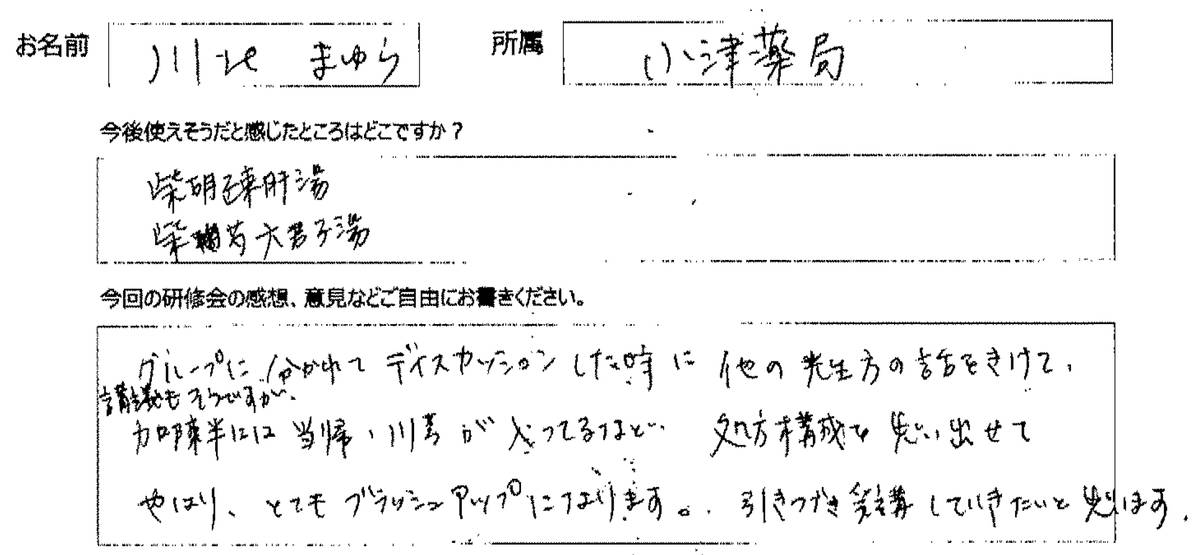 お名前 川北 まゆら 所属 小津薬局
今後使えそうだと感じたところはどこですか？
柴胡疎肝湯
柴芍六君子湯
今回の研修会の感想、意見などご自由にお書きください。
グループに分かれてディスカッションした時に他の先生方の話をきけて、
講義もそうですが、
加味陳半には当帰、川芎が入ってるなど、処方構成も思い出せて
やはり、とてもブラッシュアップになります。引きつづき受講していきたいと思います。